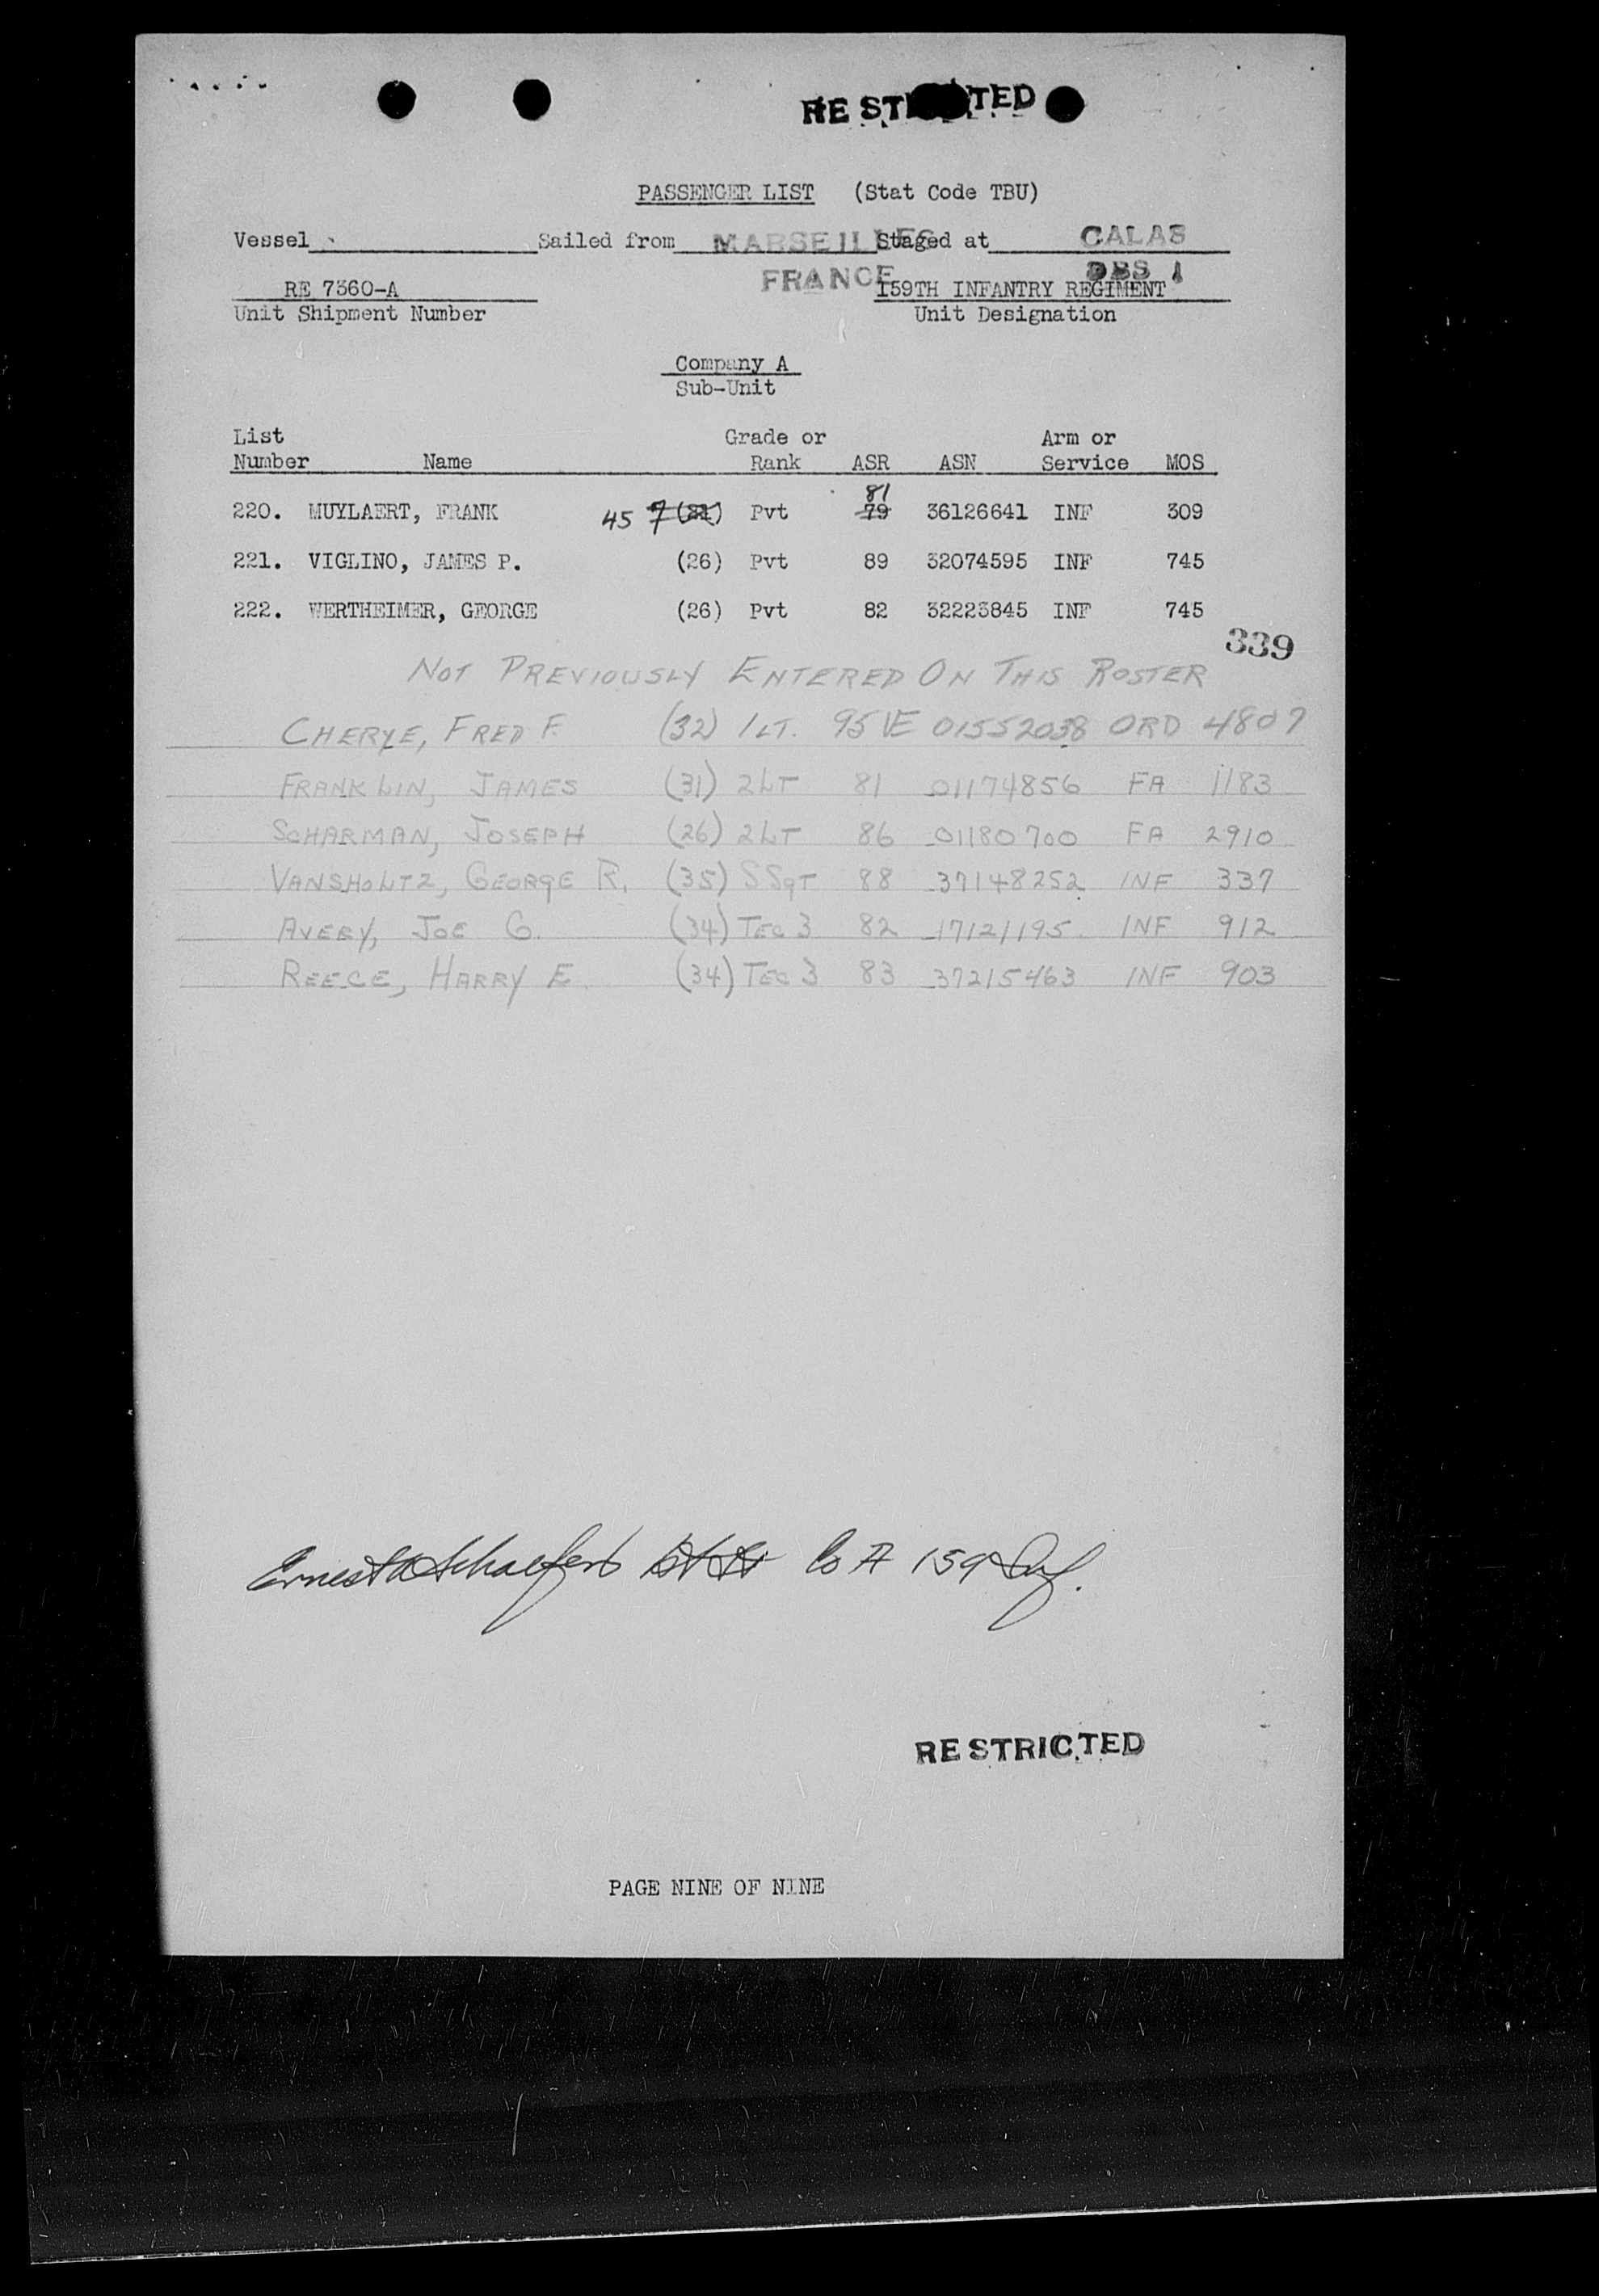 RESTRICTED
PASSENGER LIST (Stat Code TBU)
Vessel Sailed from MARSEILLES FRANCE Staged at CALAS DBS 1
RE 7360-A 159TH INFANTRY REGIMENT
Unit Shipment Number Unit Designation
Company A
Sub-Unit
List Grade or Arm or
Number Name Rank ASR ASN Service MOS
81
220. MUYLAERT, FRANK 45 7 Pvt 79 36126641 INF 309
221. VIGLINO, JAMES P. (26) Pvt 89 32074595 INF 745
222. WERTHEIMER, GEORGE (26) Pvt 82 32223845 INF 745
339
NOT PREVIOUSLY ENTERED ON THIS ROSTER
CHERYE, FRED F. (32) 1LT. 95 VE 01552038 ORD 4807
FRANKLIN, JAMES (31) 2LT 81 01174856 FA 1183
SCHARMAN, JOSEPH (26) 2LT 86 01180700 FA 2910
VANSHOLTZ, GEORGE R. (35) SSGT 88 37148252 INF 337
AVERY, JOE G. (34) TEC 3 82 17121195 INF 912
REECE, HARRY E. (34) TEC 3 83 37215463 INF 903
Ernest Schaefer Co A 159 Inf.
RESTRICTED
PAGE NINE OF NINE